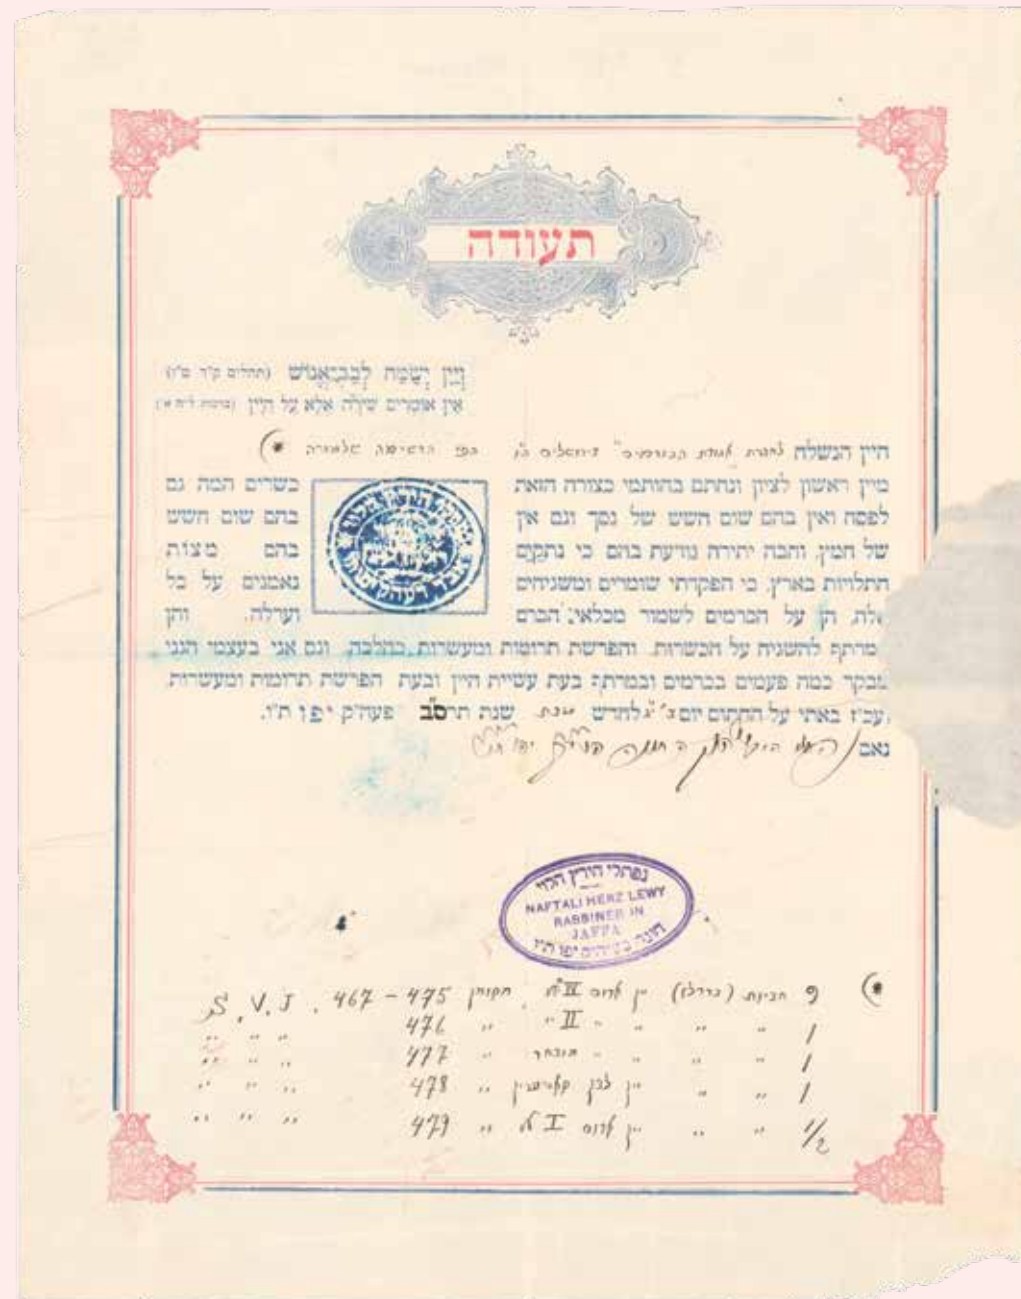 תעודה
וְיַיִן יְשַׂמַּח לְבַב־אֱנוֹשׁ (תהלים ק"ד ט"ו)
אין אומרים שירה אלא על היין
היין הנשלח לחברת אגודת הכורמים
מיין ראשון לציון ונחתם בחותמי כצורה הזאת כשרים המה גם
לפסח ואין בהם שום חשש של נסך וגם אין בהם שום חשש
של חמץ, וחבה יתירה נודעת בהם כי נתקים בהם מצות
התלויות בארץ, כי הפקדתי שומרים ומשגיחים נאמנים על כל
אלה, הן על הכרמים לשמור מכלאי הכרם וערלה, והן
במרתף להשגיח על הכשרות, והפרשת תרומות ומעשרות כהלכה, וגם אני בעצמי הנני
מבקר כמה פעמים בכרמים ובמרתף בעת עשיית היין ובעת הפרשת תרומות ומעשרות,
ועכ"ז באתי על החתום יום לחדש טבת שנת תרס"ב פעה"ק יפו ת"ו.
נאם
נפתלי הירץ הלוי
NAFTALI HERZ LEWY
RABBINER IN
JAFFA
חונה בעיה"ק יפו ת"ו
9 חביות יין אדום III 467 – 475, J. V. S.
1 " " " " II " " 476 " " "
1 " " " " " 477 " " "
1 " " יין לבן " 478 " " "
1/2 " " יין אדום I " 479 " " "